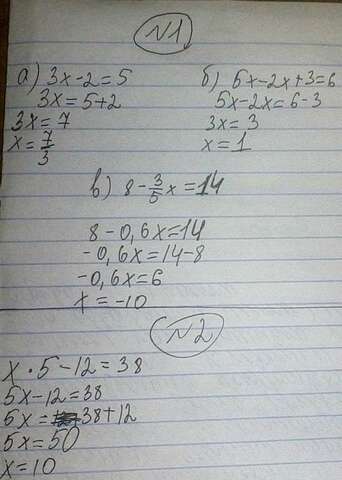 №1
а) 3x-2=5
3x=5+2
3x=7
x=7/3
б) 5x-2x+3=6
5x-2x=6-3
3x=3
x=1
в) 8-3/5x=14
8-0,6x=14
-0,6x=14-8
-0,6x=6
x=-10
№2
x·5-12=38
5x-12=38
5x=38+12
5x=50
x=10